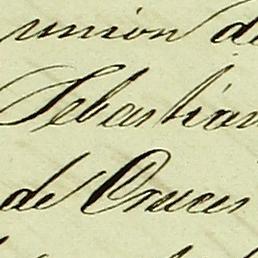 union de
Sebastian
de Cruces